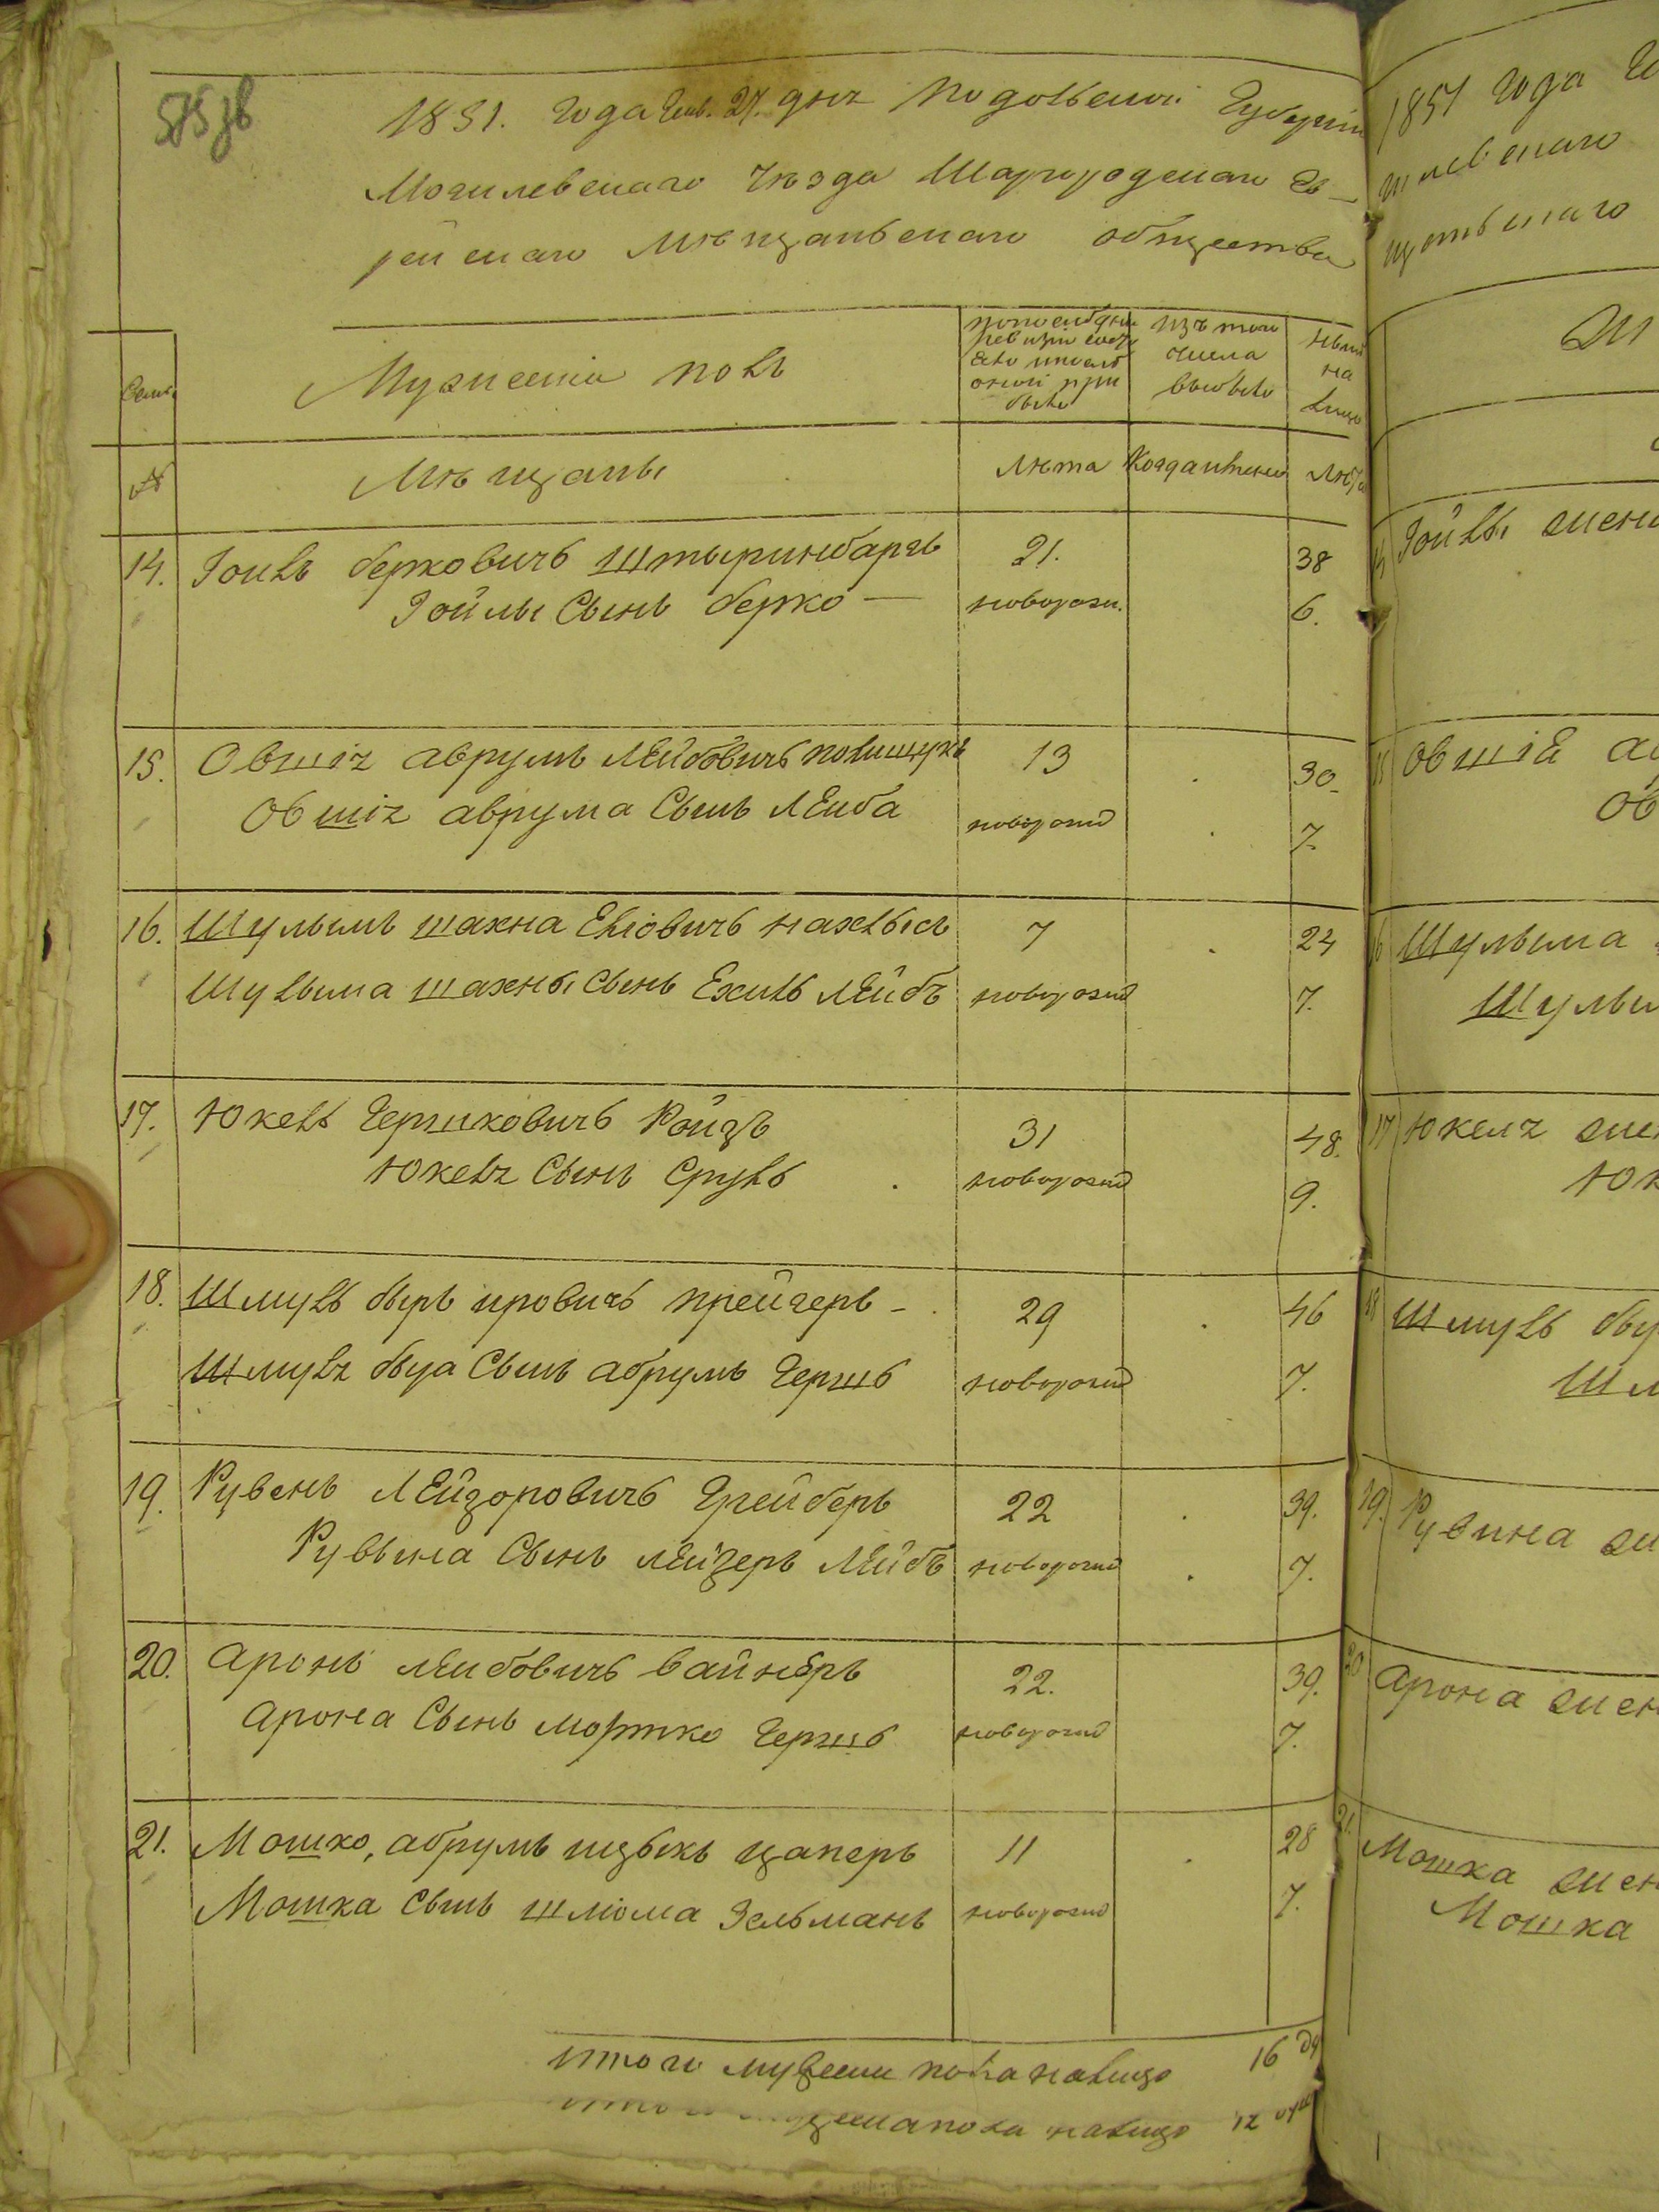 575 зв
1851. года Генв. 27. дня Подольской Губерніи
Могилевскаго Уѣзда Шаргородскаго Ев-
рейскаго Мѣщанскаго общества
Семьи
Мужескій полъ
по последней ревизіи состояло и после оной прибыло
изъ того числа выбыло
ныне на лицо
№
Мѣщаны
Лѣта
Когда именно
Лѣта
14. Іойлъ берковичъ Штыринбаргъ 21. 38
Іойлы Сынъ берко — новорожд. 6.
15. Овшія аврумъ Лейбовичъ полищукъ 13 30
Овшія аврума Сынъ Леиба новорожд 7.
16. Шулымъ шахна Ехіовичъ нахлысъ 7 24
Шулыма шахны Сынъ Ехиль Лейбъ новорожд 7.
17. Юкель Гершковичъ Ройзъ 31 48.
Юкеля Сынъ Сруль новорожд 9.
18. Шмуль быръ ировичъ прейгеръ - 29 46
Шмуля быра Сынъ абрумъ Гершъ новорожд 7.
19. Рувенъ Лейзоровичъ Грейберъ 22 39.
Руввина Сынъ лейзеръ Лейбъ новорожд 7.
20. Аронъ леибовичъ Вайнеръ 22. 39.
Арона Сынъ мортко Гершъ новорожд 7.
21. Мошко, абрумъ ицыкъ цаперъ 11 28
Мошка сынъ шлюма Зельманъ новорожд 7.
итого мужеска пола налицо 16 ду
пола налицо 12
1851 года
14 Іойлы жена
15 Овшія
Ов
16 Шулыма
Шулым
17 Юкеля жен
Юк
18 Шмуль
Шм
19. Рувина
20 Арона жен
21. Мошка жен
Мошка